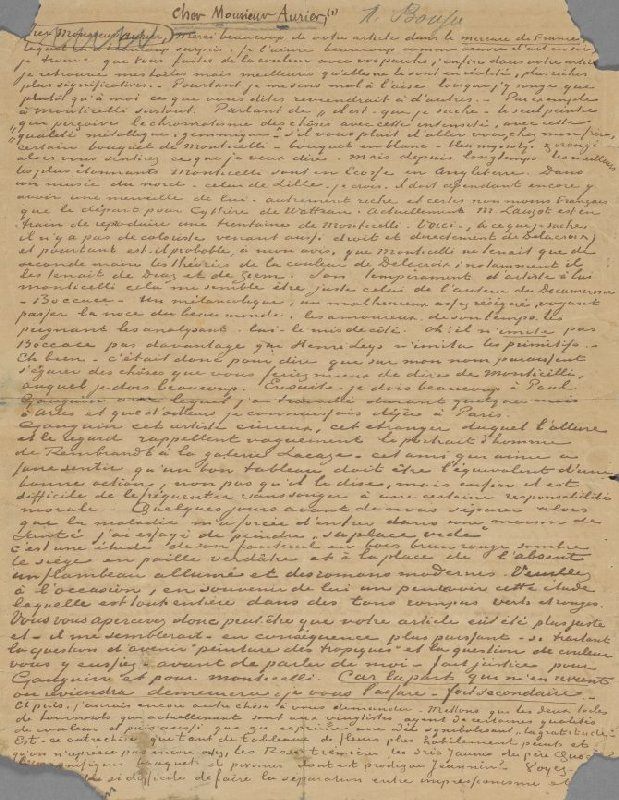 Cher Monsieur Aurier,
Cher Monsieur Aurier, merci beaucoup de votre article dans le mercure de France,
lequel m'a beaucoup surpris. je l'aime beaucoup comme œuvre d'art en soi
je trouve que vous faites de la couleur avec vos paroles; enfin dans votre article
je retrouve mes toiles mais meilleures qu'elles ne le sont en réalité, plus riches
plus significatives. - Pourtant je me sens mal à l'aise lorsque j'y songe que
plutôt qu'à moi ce que vous dites reviendrait à d'autres. - Par exemple
à Monticelli surtout. Parlant de „il est - que je sache - le seul peintre
qui perçoive le chromatisme des choses avec cette intensité, avec cette
„qualité métallique, gemmique" s'il vous plait d'aller voir, chez mon frère,
certain bouquet de Monticelli - bouquet en blanc - bleu myosotys & orangé
alors vous sentirez ce que je veux dire. - Mais depuis longtemps les meilleurs
les plus étonnants Monticelli sont en Ecosse, en Angleterre. Dans
un musée du nord - celui de Lille je crois. - il doit cependant encore y
avoir une merveille de lui. autrement riche et certes non moins Français
que le départ pour Cythère de Watteau. Actuellement M. Lauzet est en
train de reproduire une trentaine de Monticelli. Voici., à ce que je sache,
il n'y a pas de coloriste venant aussi droit et directement de Delacroix;
et pourtant est-il probable, à mon avis, que Monticelli ne tenait que de
seconde main les théories de la couleur de Delacroix; notamment il
les tenait de Diaz et de Ziem. Son tempérament d'artiste à lui
Monticelli cela me semble être juste celui de l'auteur du Décameron
- Boccace - Un mélancolique, un malheureux assez résigné, voyant
passer la noce du beau monde, les amoureux de son temps, les
peignant les analysant. lui - le mis de côté. Oh! il n'imite pas
Boccace pas davantage que Henri Leys n'imita les primitifs. -
Eh bien - c'était donc pour dire que sur mon nom paraissent
s'égarer des choses que vous feriez mieux de dire de Monticelli,
auquel je dois beaucoup. Ensuite - je dois beaucoup à Paul
Gauguin avec lequel j'ai travaillé durant quelques mois
à Arles et que d'ailleurs je connaissais déjà à Paris.
Gauguin cet artiste curieux, cet étranger duquel l'allure
et le regard rappellent vaguement le portrait d'homme
de Rembrandt à la galerie Lacaze - cet ami qui aime à
faire sentir qu'un bon tableau doit être l'équivalent d'une
bonne action, non pas qu'il le dise, mais enfin il est
difficile de le fréquenter sans songer à une certaine responsabilité
morale Quelques jours avant de nous séparer alors
que la maladie m'a forcé d'entrer dans une maison de
santé j'ai essayé de peindre „sa place vide"
c'est une étude de son fauteuil en bois brun rouge sombre
le siège en paille verdâtre et à la place de l'absent
un flambeau allumé et des romans modernes. Veuillez
à l'occasion, en souvenir de lui un peu revoir cette étude
laquelle est tout entière dans des tons rompus verts et rouges.
Vous vous apercevez donc peut être que votre article eut été plus juste
et - il me semblerait - en conséquence plus puissant - si traitant
la question d'avenir „peinture des tropiques" et la question de couleur
vous y eussiez - avant de parler de moi - fait justice pour
Gauguin et pour Monticelli. Car la part qui m'en revient
ou reviendra demeurera, je vous l'assure - fort secondaire. -
Et puis, j'aurais encore autre chose à vous demander - Mettons que les deux toiles
de tournesols qui actuellement sont aux vingtistes ayent de certaines qualités
de couleur et puis aussi que ça exprime une idée symbolisant „la gratitude"
Est-ce autre chose que tant de tableaux de fleurs plus habilement peints et
qu'on n'apprécie pas encore assez, les Roses trémières les Iris Jaunes du père Quost
les magnifiques bouquets de pivoines dont est prodigue Jeannin. Voyez
si difficile de faire la séparation entre impressionisme et